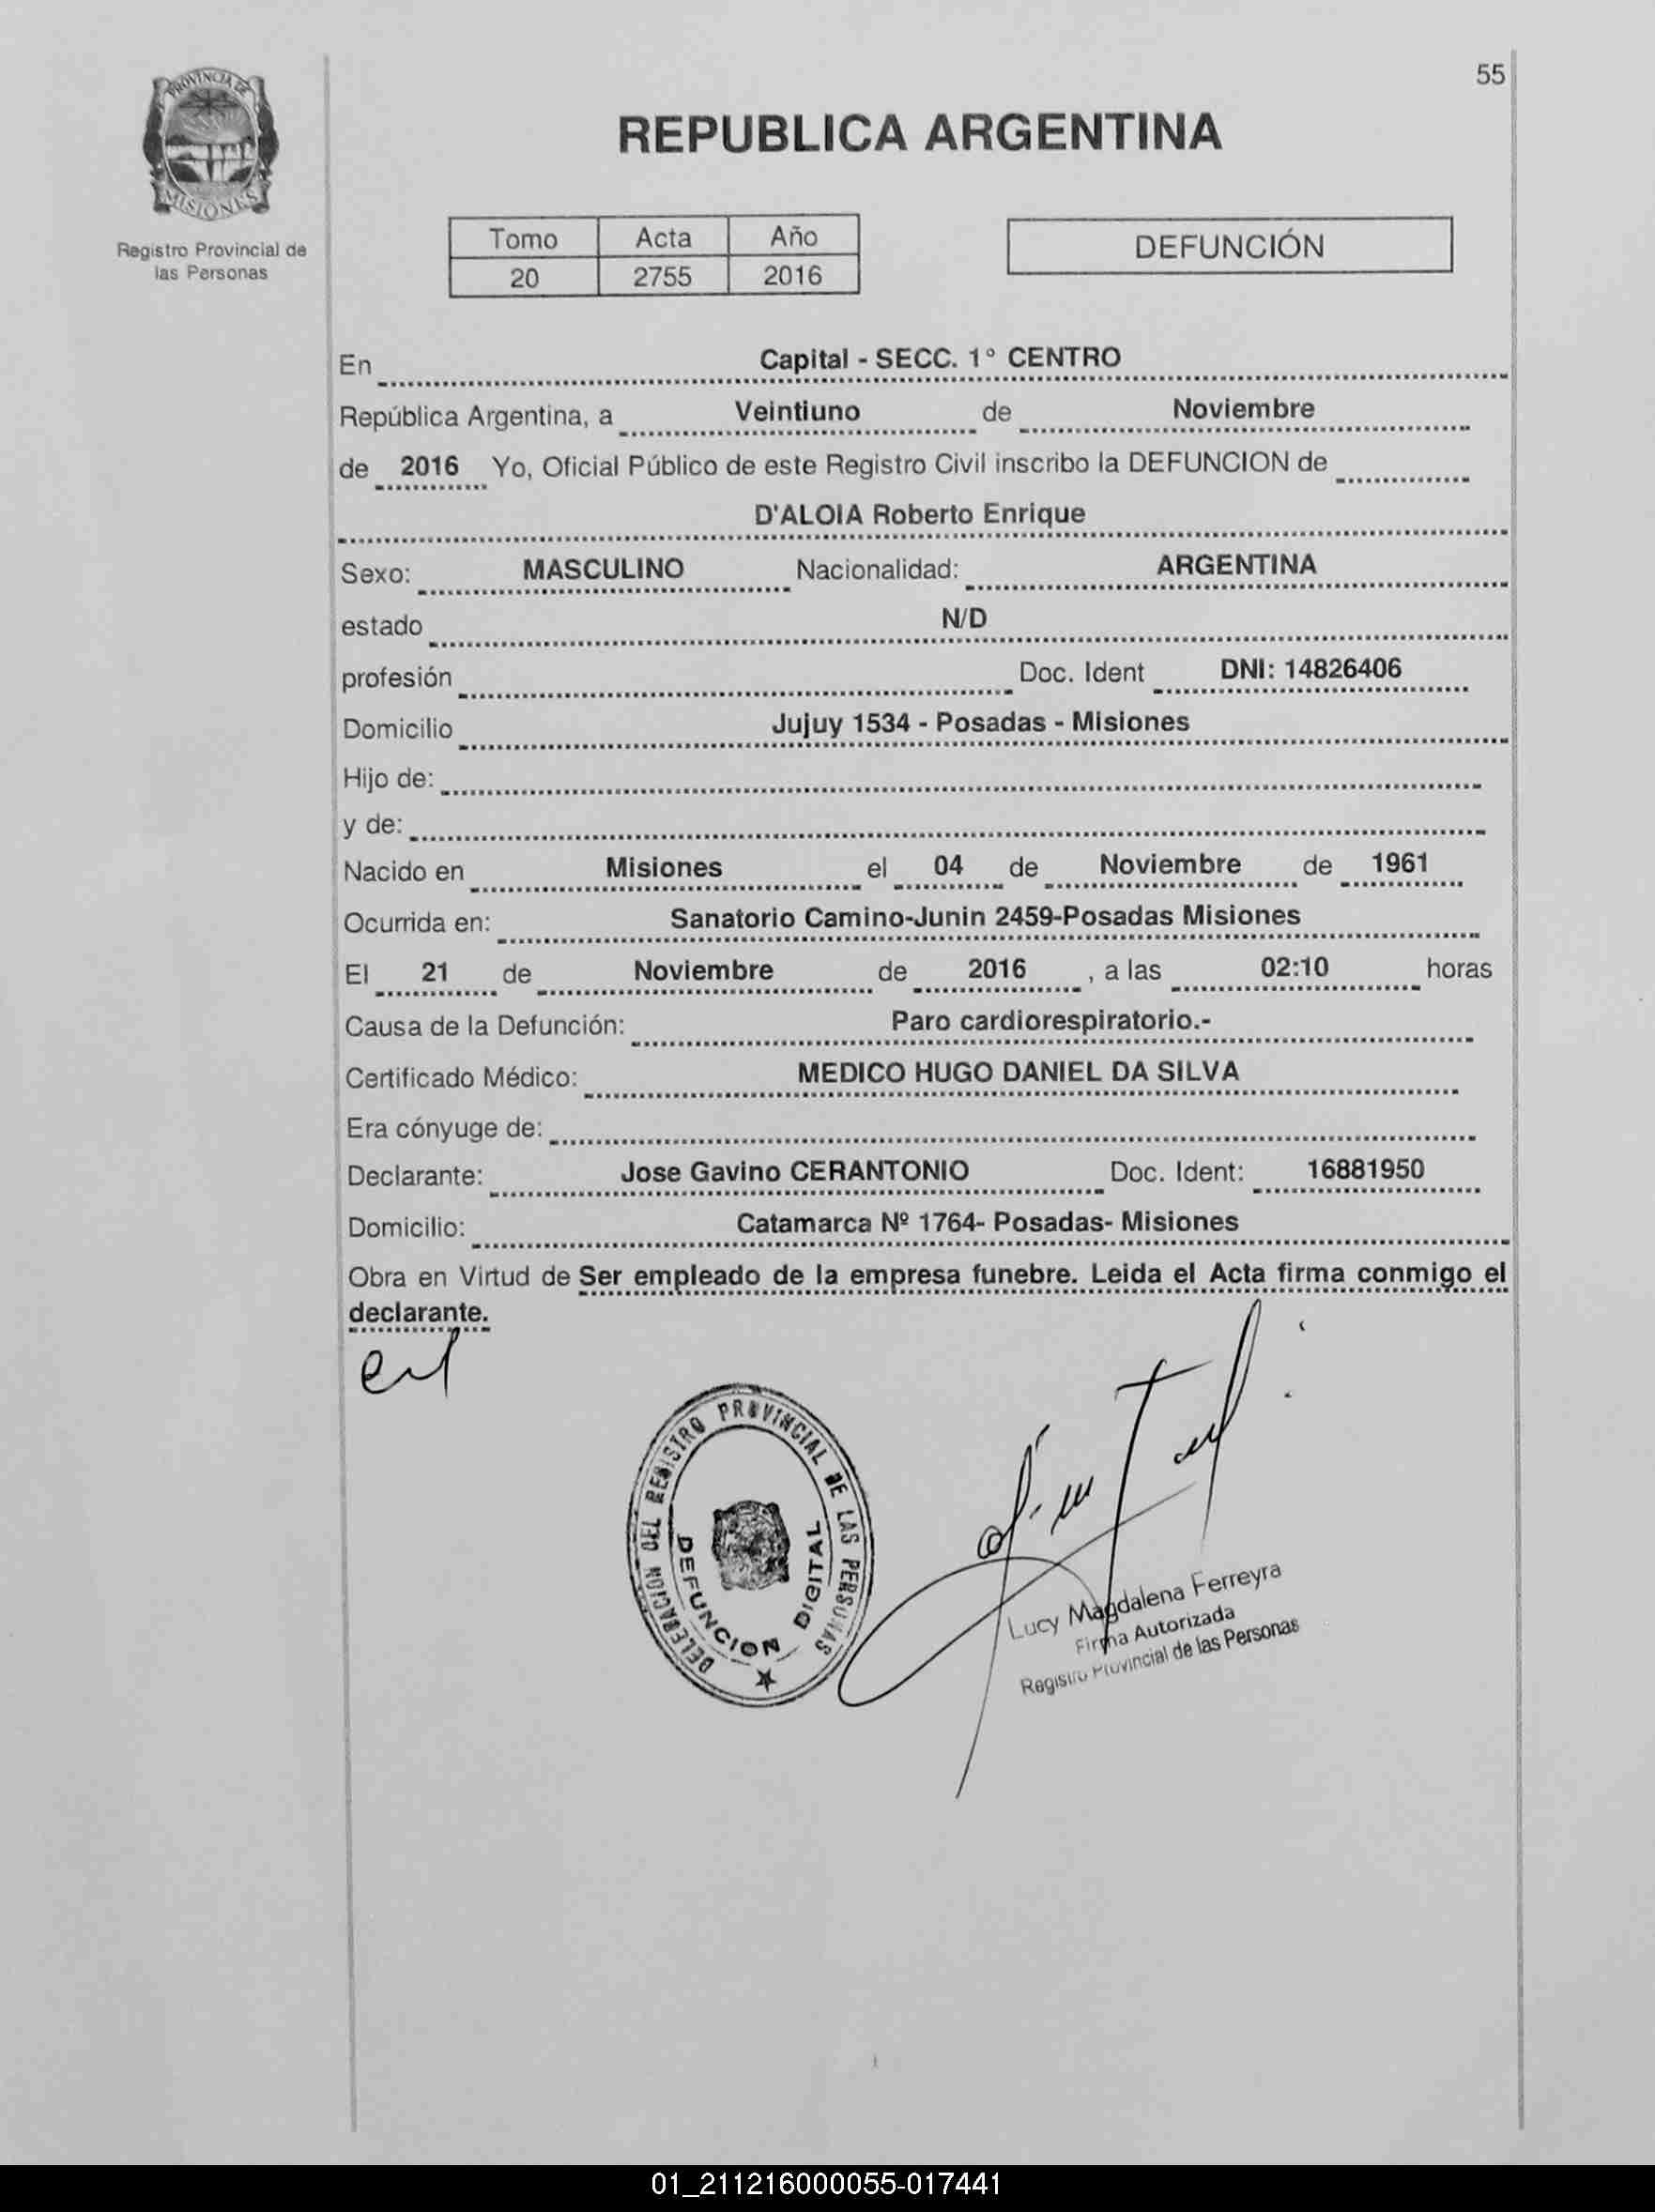 55
PROVINCIA DE
MISIONES
Registro Provincial de
las Personas
REPUBLICA ARGENTINA
Tomo Acta Año
20 2755 2016
DEFUNCIÓN
En Capital - SECC. 1° CENTRO
República Argentina, a Veintiuno de Noviembre
de 2016 Yo, Oficial Público de este Registro Civil inscribo la DEFUNCION de
D'ALOIA Roberto Enrique
Sexo: MASCULINO Nacionalidad: ARGENTINA
estado N/D
profesión Doc. Ident DNI: 14826406
Domicilio Jujuy 1534 - Posadas - Misiones
Hijo de:
y de:
Nacido en Misiones el 04 de Noviembre de 1961
Ocurrida en: Sanatorio Camino-Junin 2459-Posadas Misiones
El 21 de Noviembre de 2016 , a las 02:10 horas
Causa de la Defunción: Paro cardiorespiratorio.-
Certificado Médico: MEDICO HUGO DANIEL DA SILVA
Era cónyuge de:
Declarante: Jose Gavino CERANTONIO Doc. Ident: 16881950
Domicilio: Catamarca Nº 1764- Posadas- Misiones
Obra en Virtud de Ser empleado de la empresa funebre. Leida el Acta firma conmigo el
declarante.
DELEGACION DEL REGISTRO PROVINCIAL DE LAS PERSONAS
DEFUNCION DIGITAL
Lucy Magdalena Ferreyra
Firma Autorizada
Registro Provincial de las Personas
01_211216000055-017441